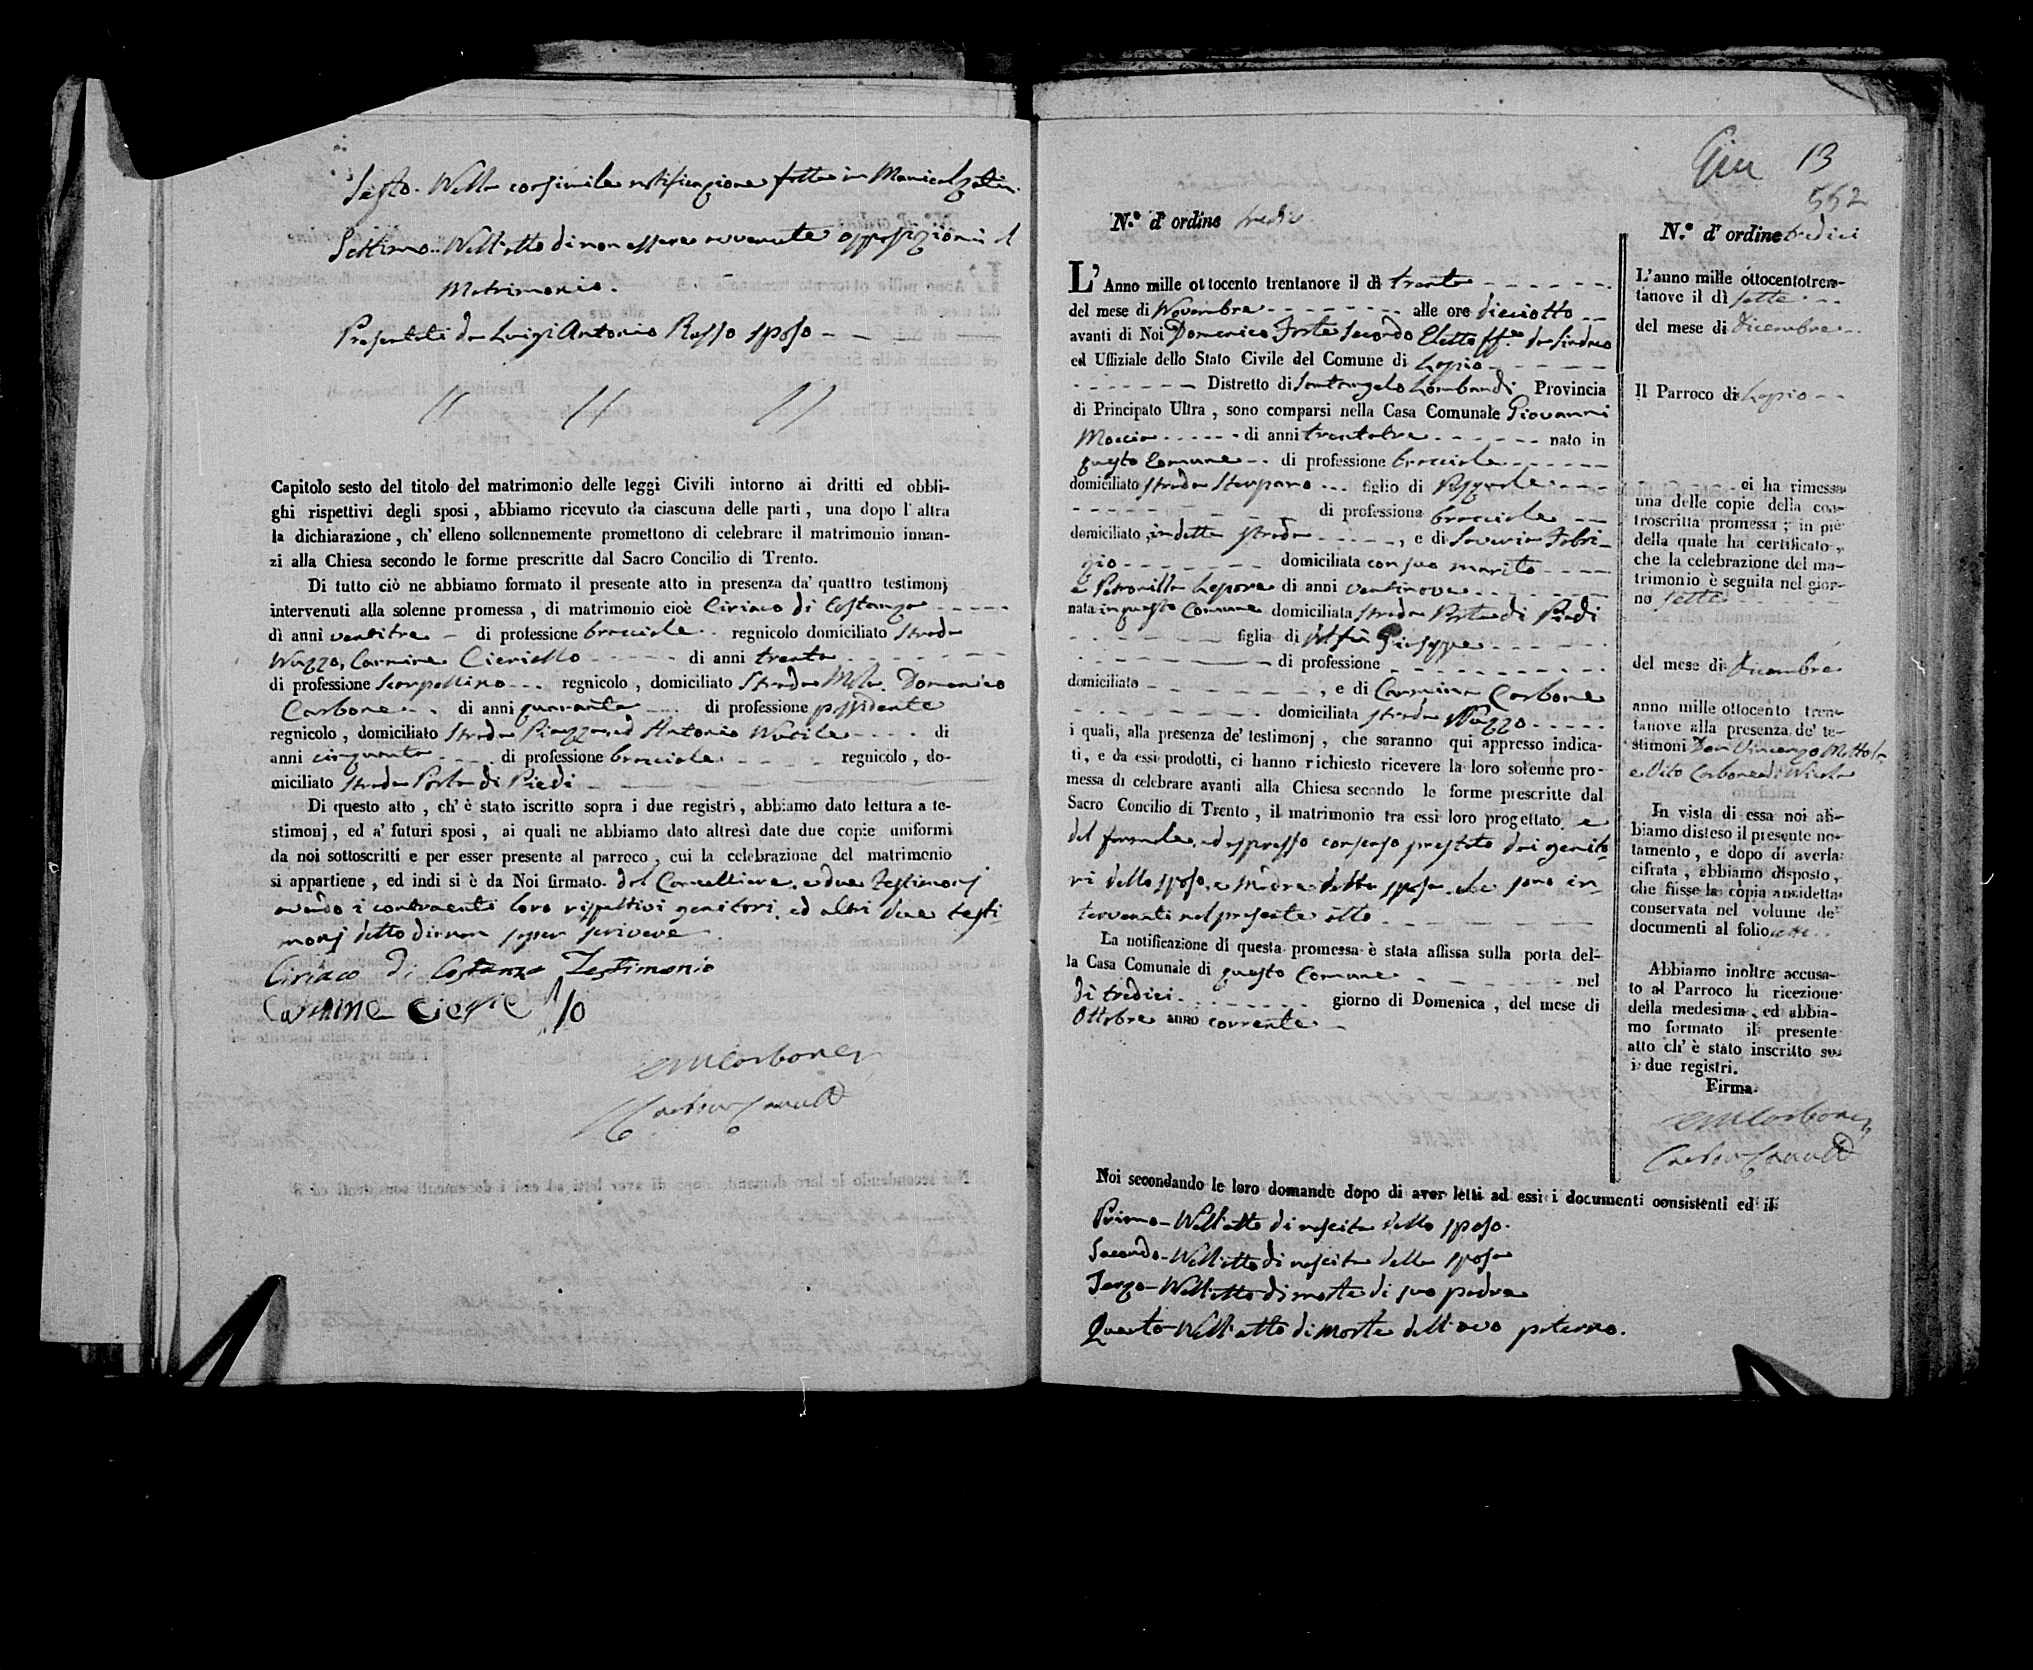 Sesto. Nella consimile notificazione fatta in Manicalzati.
Settimo. Nell'atto di non essere avvenute opposizioni al
Matrimonio.
Presentati da Luigi Antonio Russo sposo
Capitolo sesto del titolo del matrimonio delle leggi Civili intorno ai dritti ed obbli-
ghi rispettivi degli sposi, abbiamo ricevuto da ciascuna delle parti, una dopo l'altra
la dichiarazione, ch'elleno sollennemente promettono di celebrare il matrimonio innan-
zi alla Chiesa secondo le forme prescritte dal Sacro Concilio di Trento.
Di tutto ciò ne abbiamo formato il presente atto in presenza da' quattro testimonj
intervenuti alla solenne promessa, di matrimonio cioè Ciriaco di Costanzo
di anni ventitre di professione bracciale regnicolo domiciliato Strada
Nuzzo, Carmine Cieriello di anni trenta
di professione Scarpellino regnicolo, domiciliato Strada Domenico
Carbone di anni quaranta di professione possidente
regnicolo, domiciliato Strada Piazza ed Antonio di
anni cinquanta di professione bracciale regnicolo, do-
miciliato Strada Porta di Piedi
Di questo atto, ch'è stato iscritto sopra i due registri, abbiamo dato lettura a te-
stimonj, ed a' futuri sposi, ai quali ne abbiamo dato altresì date due copie uniformi
da noi sottoscritti e per esser presente al parroco, cui la celebrazione del matrimonio
si appartiene, ed indi si è da Noi firmato. dal Cancelliere, e due Testimonj
avendo i contraenti loro rispettivi genitori, ed altri due testi
monj detto di non saper scrivere
Ciriaco di Costanzo Testimonio
Carmine Cieriello
Carbone
13
552
N.º d'ordine tredici
L'Anno mille ottocento trentanove il dì trenta
del mese di Novembre alle ore dieciotto
avanti di Noi Domenico Forte Secondo Eletto ff. da Sindaco
ed Uffiziale dello Stato Civile del Comune di Lapio
Distretto di Santangelo Lombardi Provincia
di Principato Ultra, sono comparsi nella Casa Comunale Giovanni
Moccia di anni trentatre nato in
questo Comune di professione bracciale
domiciliato strada figlio di Pasquale
di professione bracciale
domiciliato, in detta strada, e di Saveria Fabri-
zio domiciliata con suo marito
e Petronilla Lepore di anni ventinove
nata in questo Comune domiciliata strada Porta di Piedi
figlia di fu Giuseppe
di professione
domiciliato, e di Carmina Carbone
domiciliata strada Nuzzo
i quali, alla presenza de' testimonj, che saranno qui appresso indica-
ti, e da essi prodotti, ci hanno richiesto ricevere la loro solenne pro-
messa di celebrare avanti alla Chiesa secondo le forme prescritte dal
Sacro Concilio di Trento, il matrimonio tra essi loro progettato, e
del formale, ed espresso consenso prestato dai genito
ri dello sposo, e Madre della sposa, che sono in-
tervenuti nel presente atto
La notificazione di questa promessa è stata affissa sulla porta del-
la Casa Comunale di questo Comune nel
dì tredici giorno di Domenica, del mese di
Ottobre anno corrente
Noi secondando le loro domande dopo di aver letti ad essi i documenti consistenti ed il
Primo - Nell'atto di nascita dello sposo.
Secondo - Nell'atto di nascita della sposa
Terzo - Nell'atto di morte di suo padre
Quarto - Nell'atto di morte dell'avo paterno.
N.º d'ordine tredici
L'anno mille ottocentotren-
tanove il dì sette
del mese di Dicembre
Il Parroco di Lapio
ci ha rimessa
una delle copie della con-
troscritta promessa; in piè
della quale ha certificato,
che la celebrazione del ma-
trimonio è seguita nel gior-
no sette
del mese di Dicembre
anno mille ottocento tren-
tanove alla presenza de' te-
stimoni Don Vincenzo
e Vito Carbone di Nicola
In vista di essa noi ab-
biamo disteso il presente no-
tamento, e dopo di averla
cifrata, abbiamo disposto,
che fusse la copia anzidetta
conservata nel volume de'
documenti al folio
Abbiamo inoltre accusa-
to al Parroco la ricezione
della medesima, ed abbia-
mo formato il presente
atto ch'è stato inscritto su
i due registri.
Firma.
Carbone